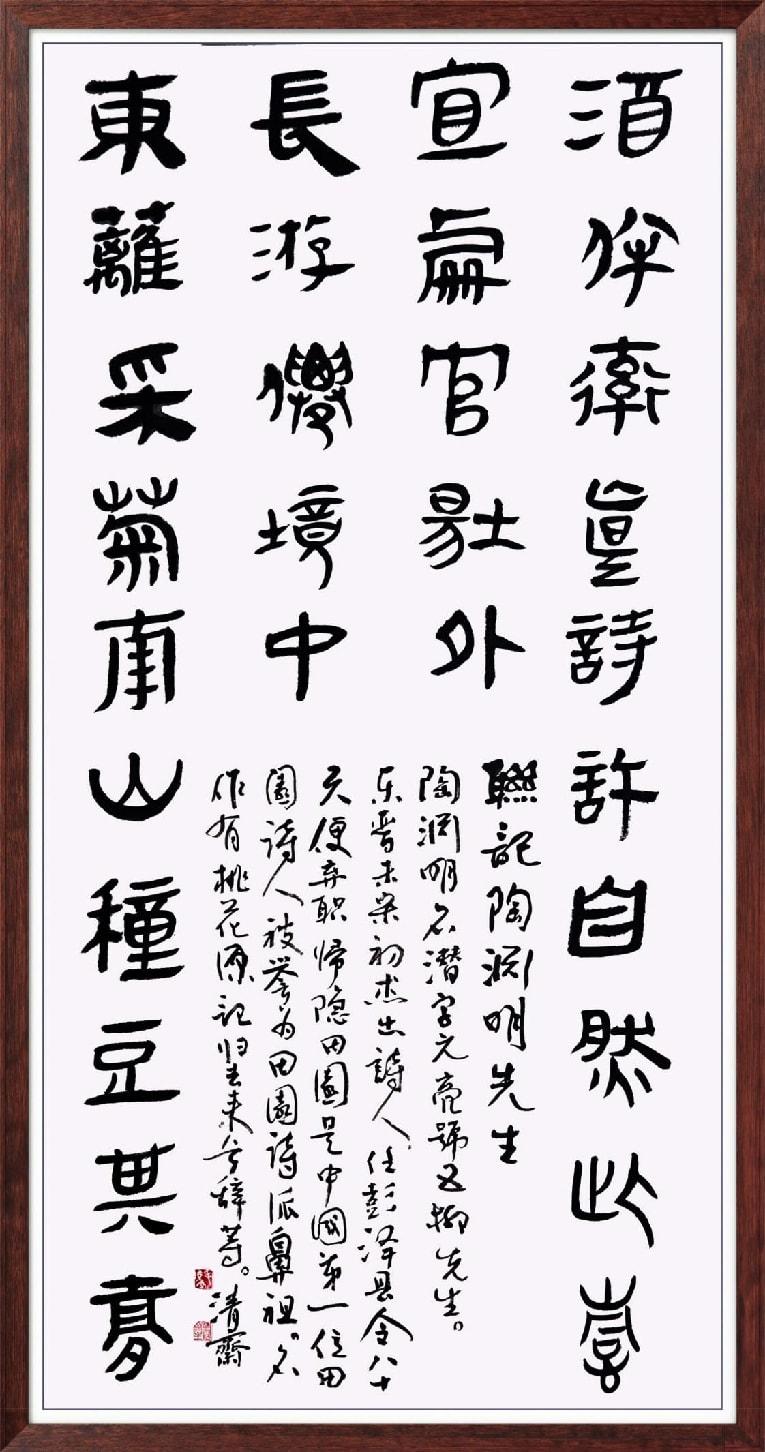 酒伴率真詩許自然此
宜處官場外
長游僊境中
東籬采菊南山種豆其夢
聯記陶渊明先生
陶渊明名潜字元亮號五柳先生。
东晋末宋初杰出詩人任彭泽县令八十
天便弃职歸隐田園是中國第一位田
園詩人被誉为田園詩派鼻祖。名
作有桃花源記归去来兮辞等。清齋